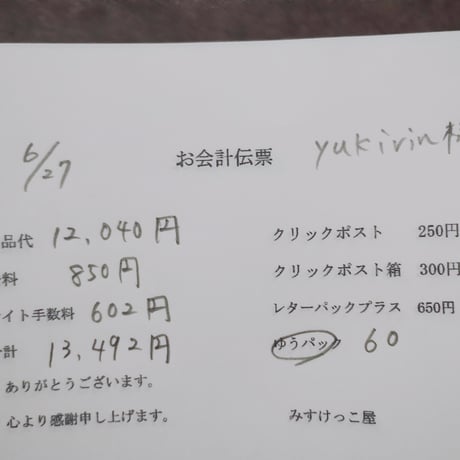 6/27
お会計伝票 yukirin様
品代 12,040円
料 850円
イト手数料 602円
計 13,492円
ありがとうございます。
心より感謝申し上げます。
クリックポスト 250円
クリックポスト箱 300円
レターパックプラス 650円
ゆうパック 60
みすけっこ屋